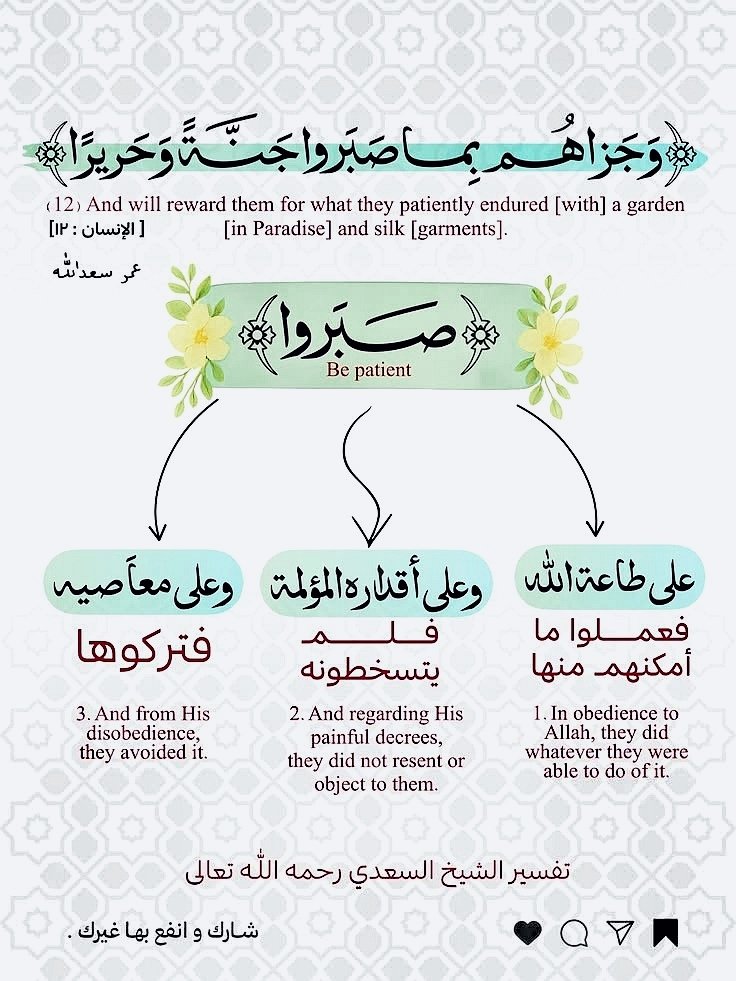 ﴿وَجَزَاهُم بِمَا صَبَرُوا جَنَّةً وَحَرِيرًا﴾
(12) And will reward them for what they patiently endured [with] a garden
[in Paradise] and silk [garments].
[ الإنسان : ١٢]
عمر سعدالله
﴿صَبَروا﴾
Be patient
على طاعة الله
فعمـــلوا ما
أمكنهم منها
1. In obedience to
Allah, they did
whatever they were
able to do of it.
وعلى أقداره المؤلمة
فـلـــــم
يتسخطونه
2. And regarding His
painful decrees,
they did not resent or
object to them.
وعلى معاَصيه
فتركوها
3. And from His
disobedience,
they avoided it.
تفسير الشيخ السعدي رحمه الله تعالى
شارك و انفع بها غيرك .